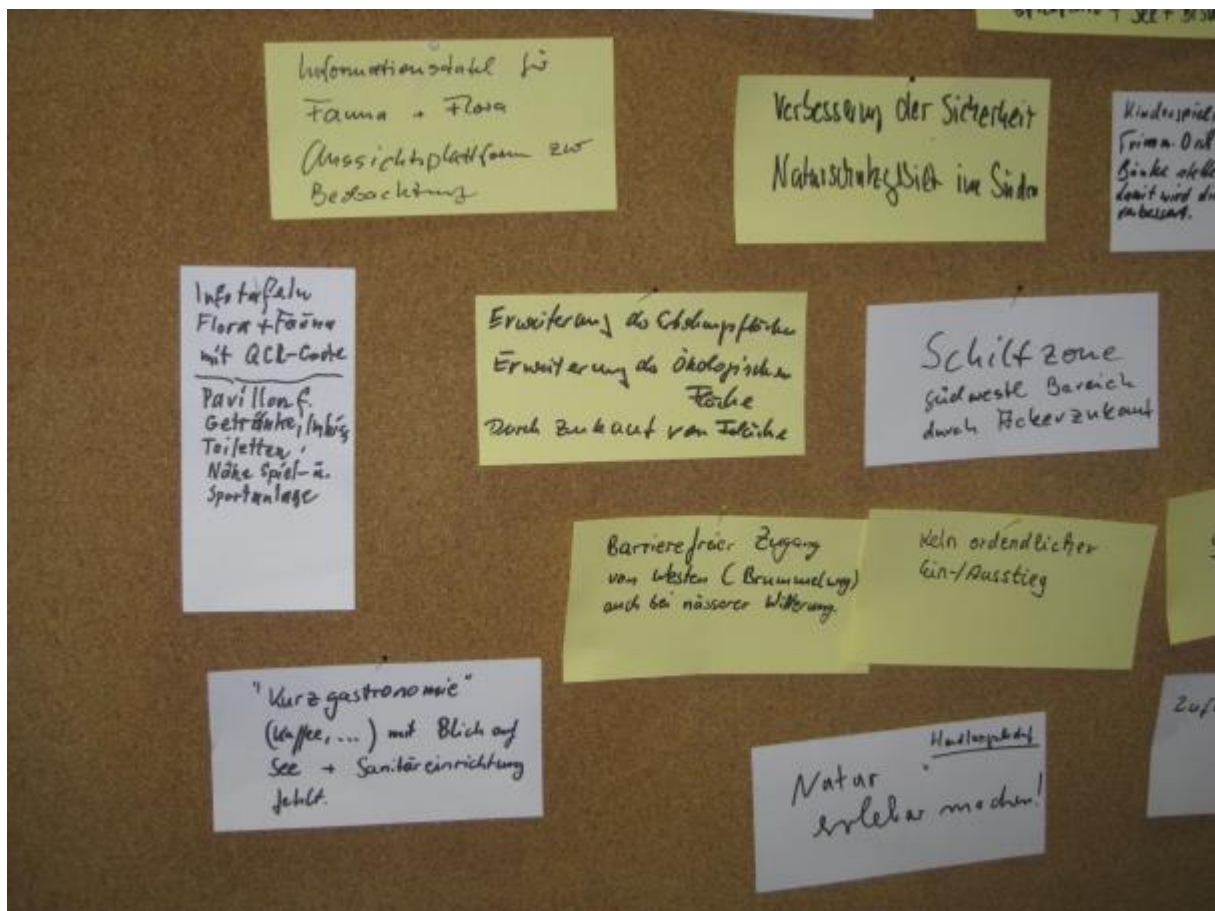 See +
Informationstafel für
Fauna + Flora
Aussichtsplattform zur
Beobachtung
Verbesserung der Sicherheit
Naturschutzgebiet im Süden
Bänke
damit wird
verbessert.
Infotafeln
Flora + Fauna
mit QCR-Code
Pavillon f.
Getränke, Imbiß
Toiletten,
Nähe Spiel- u.
Sportanlage
Erweiterung der
Erweiterung der Ökologischen
Fläche
Durch Zukauf von Fläche
Schilfzone
südwestl Bereich
durch Ackerzukauf
Barrierefreier Zugang
von Westen (Brummelweg)
auch bei nässerer Witterung.
Kein ordendlicher
Ein-/Ausstieg
"Kurzgastronomie"
(Kaffee, ...) mit Blick auf
See + Sanitäreinrichtung
fehlt.
Handlungsbedarf
Natur
erlebbar machen!